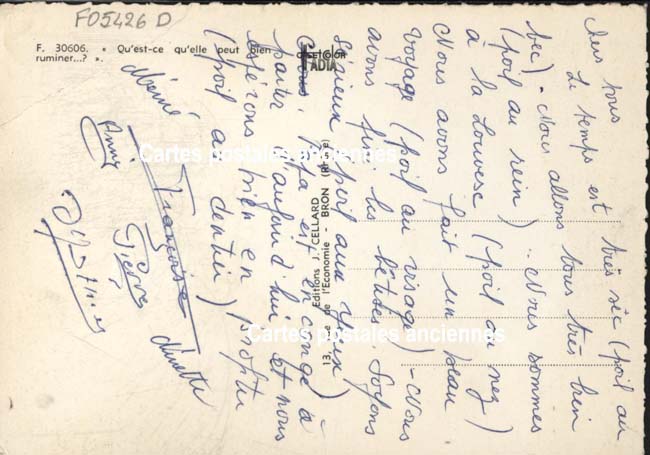 F05426 D
F. 30606. « Qu'est-ce qu'elle peut bien
ruminer...? ».
color
FADIA
Editions J. CELLARD
13, rue de l'Economie - BRON (Rhône)
Cartes postales anciennes
Cartes postales anciennes
tous
Le temps est très sec (poil au
bec) - Nous allons tous très bien
(poil au rein) .. Nous sommes
à la Louvesc (poil au nez)
Nous avons fait un beau
voyage (poil au visage) - Nous
avons fini les bêtises Soyons
sérieux (poil aux yeux)
Papa est en congé à
partir d'aujourd'hui et nous
espérons bien en profiter
(poil au dentier)
Mémé Françoise Ninette
Anny Pierre